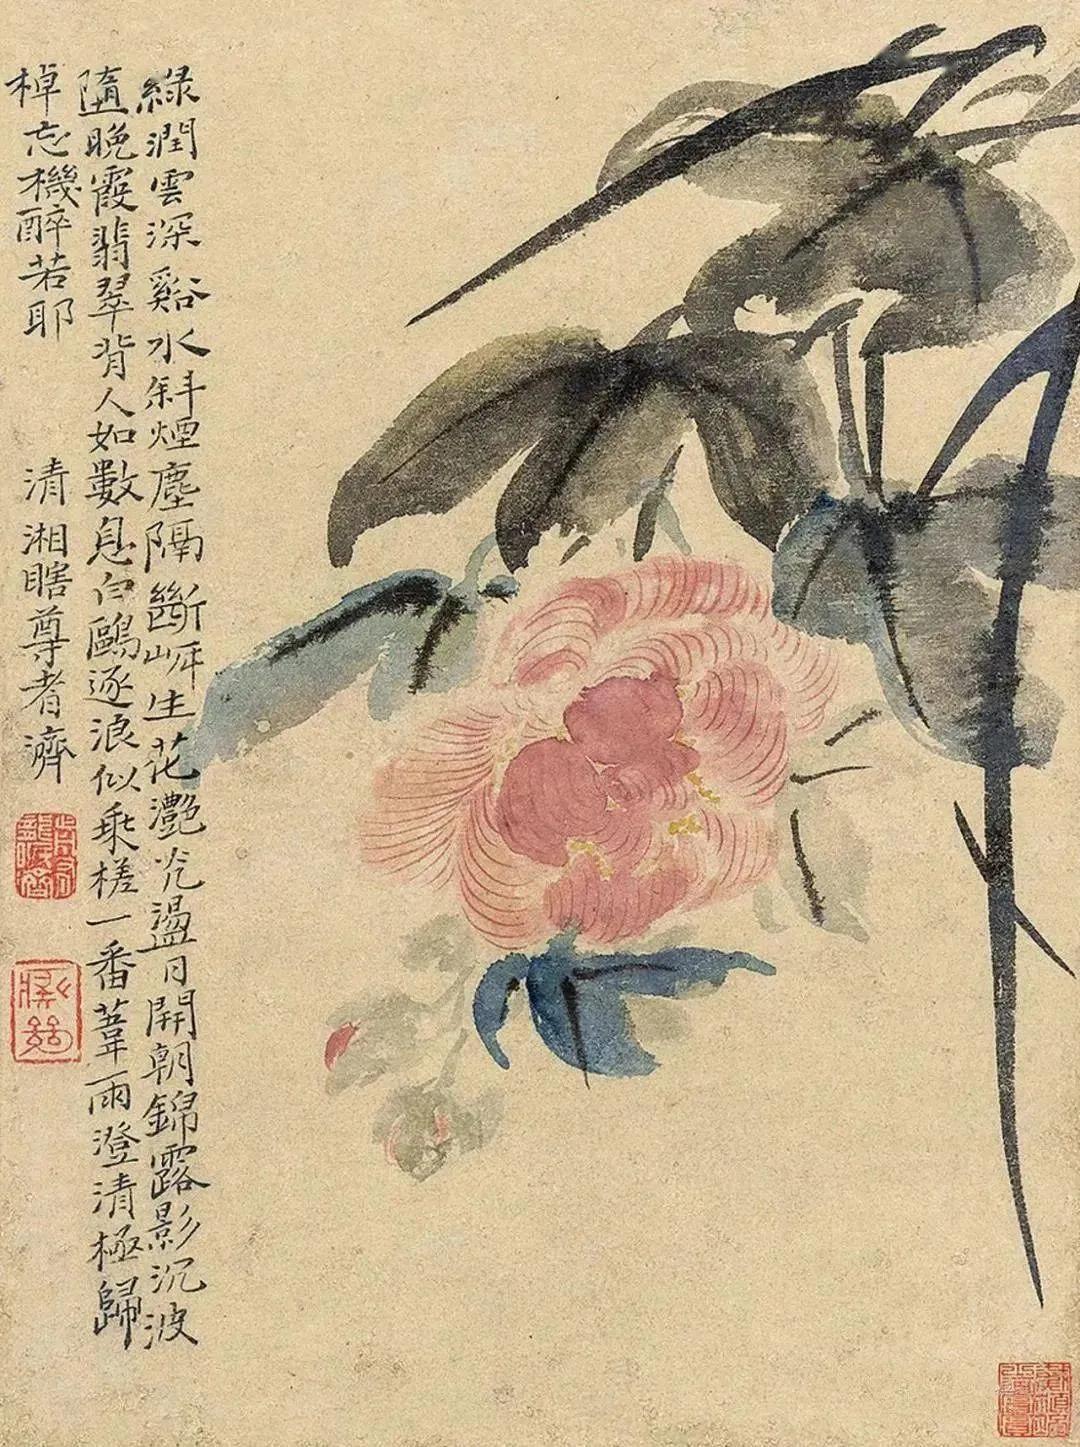 綠潤雲深谿水斜煙塵隔斷岸生花灔光盪日開朝錦露影沉波
墮晚霞翡翠背人如數息白鷗逐浪似乘槎一番葦雨澄清極歸
棹忘機醉若耶
清湘瞎尊者濟
前有龍眠濟